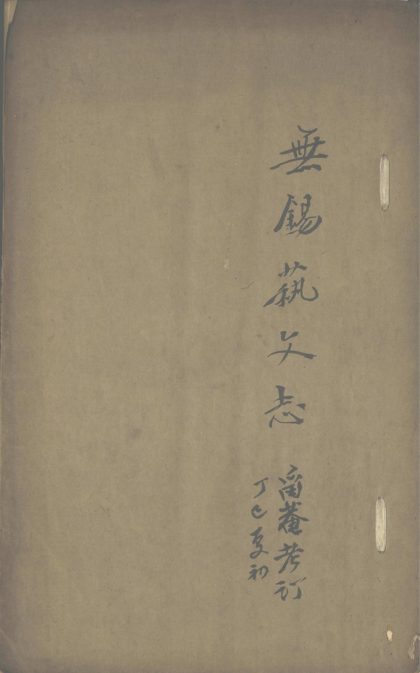 無錫蓺文志
甬菴考訂
丁巳夏初